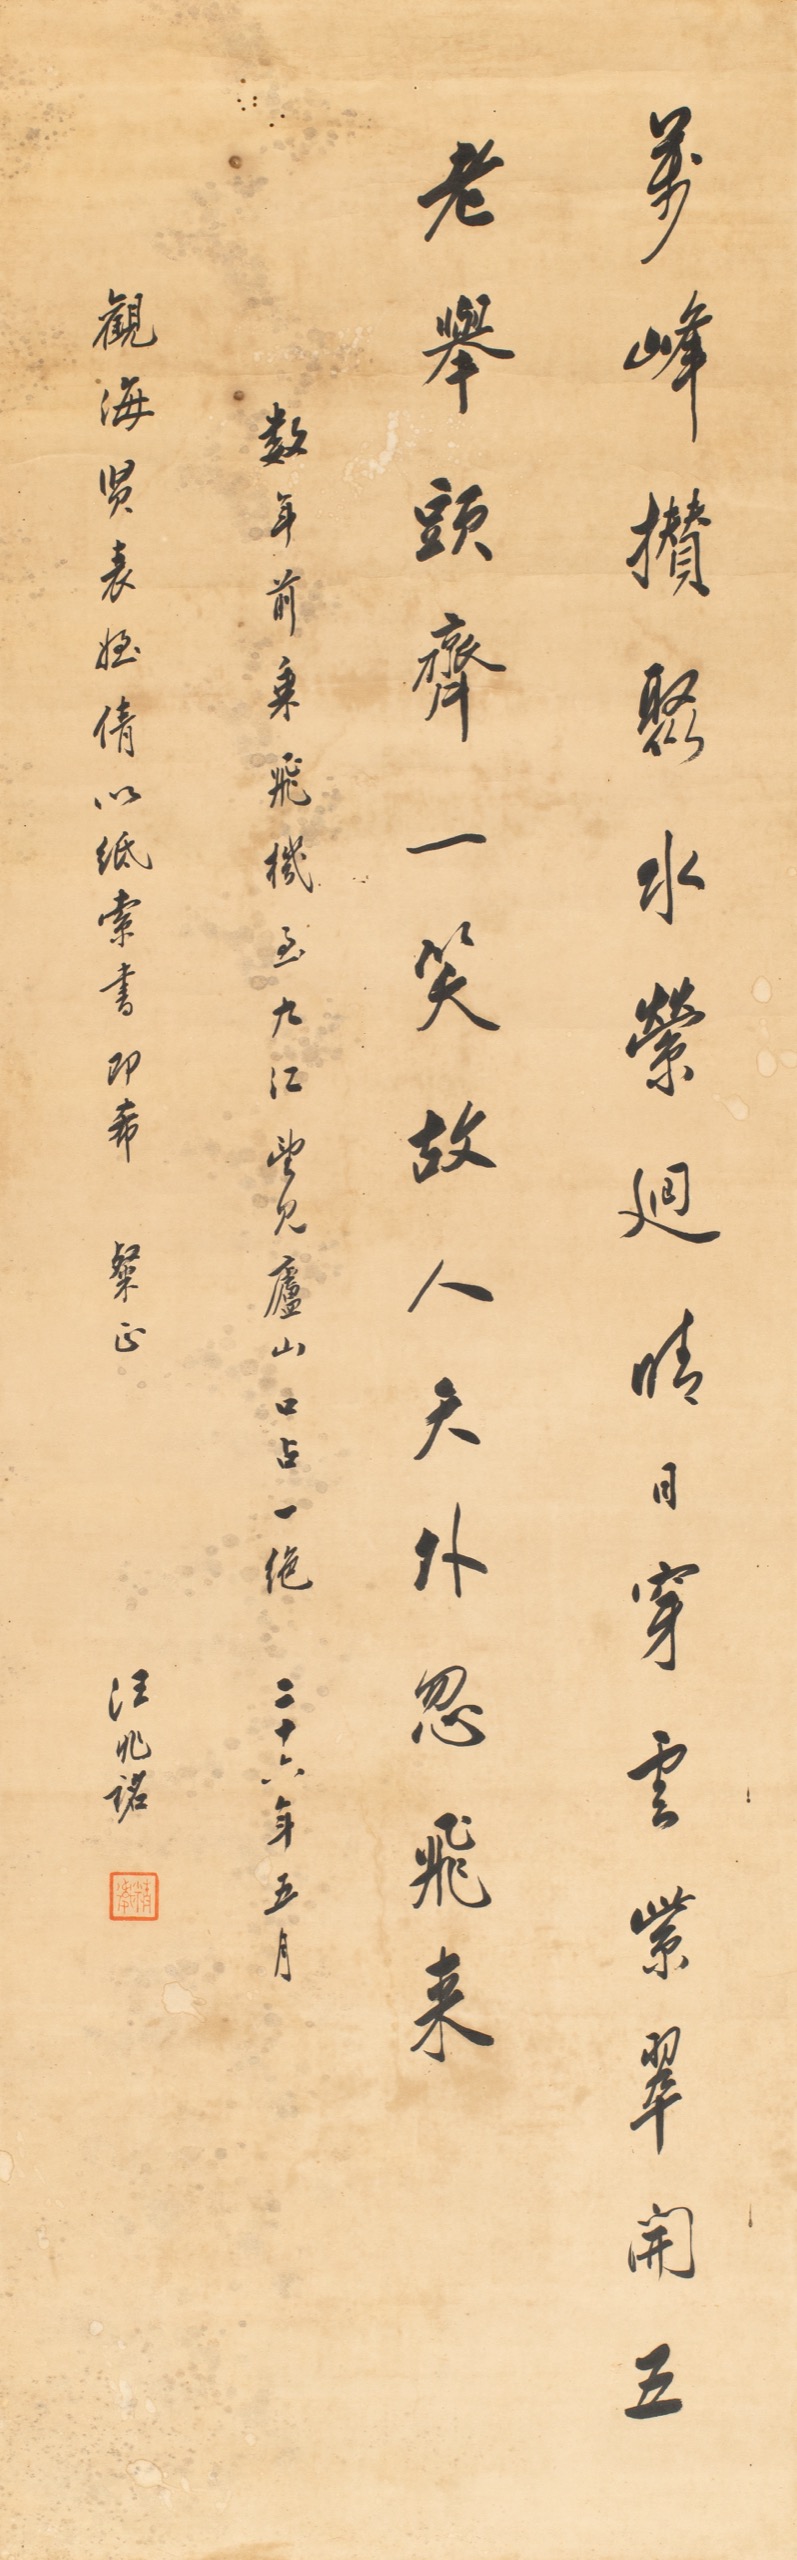 萬峰攢聚水縈廻晴日穿雲紫翠開五
老舉頭齊一笑故人天外忽飛来
数年前乘飛機至九江望見廬山口占一绝 二十六年五月
觀海贤表姪倩以纸索書即希 粲正
汪兆銘
精衛